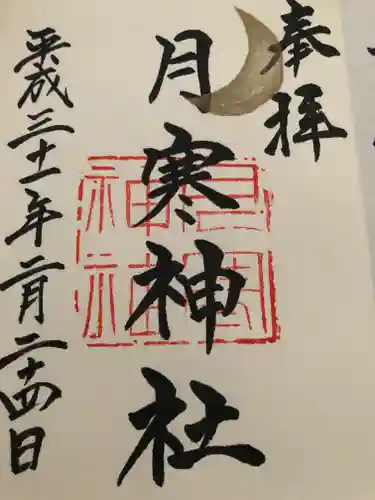 奉拝
月寒神社
平成三十一年二月二十四日